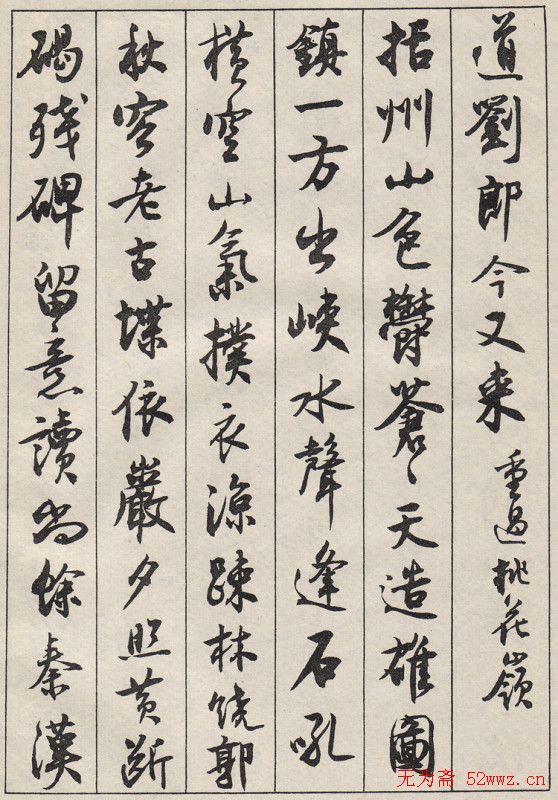 道劉郎今又來 重過桃花嶺
括州山色鬱蒼〻天造雄圖
鎮一方出峽水聲逢石吼
橫空山氣撲衣涼疎林饒郭
秋容老古堞依巖夕照黃斷
碣殘碑留意讀尚餘秦漢
无为斋 52wwz.cn